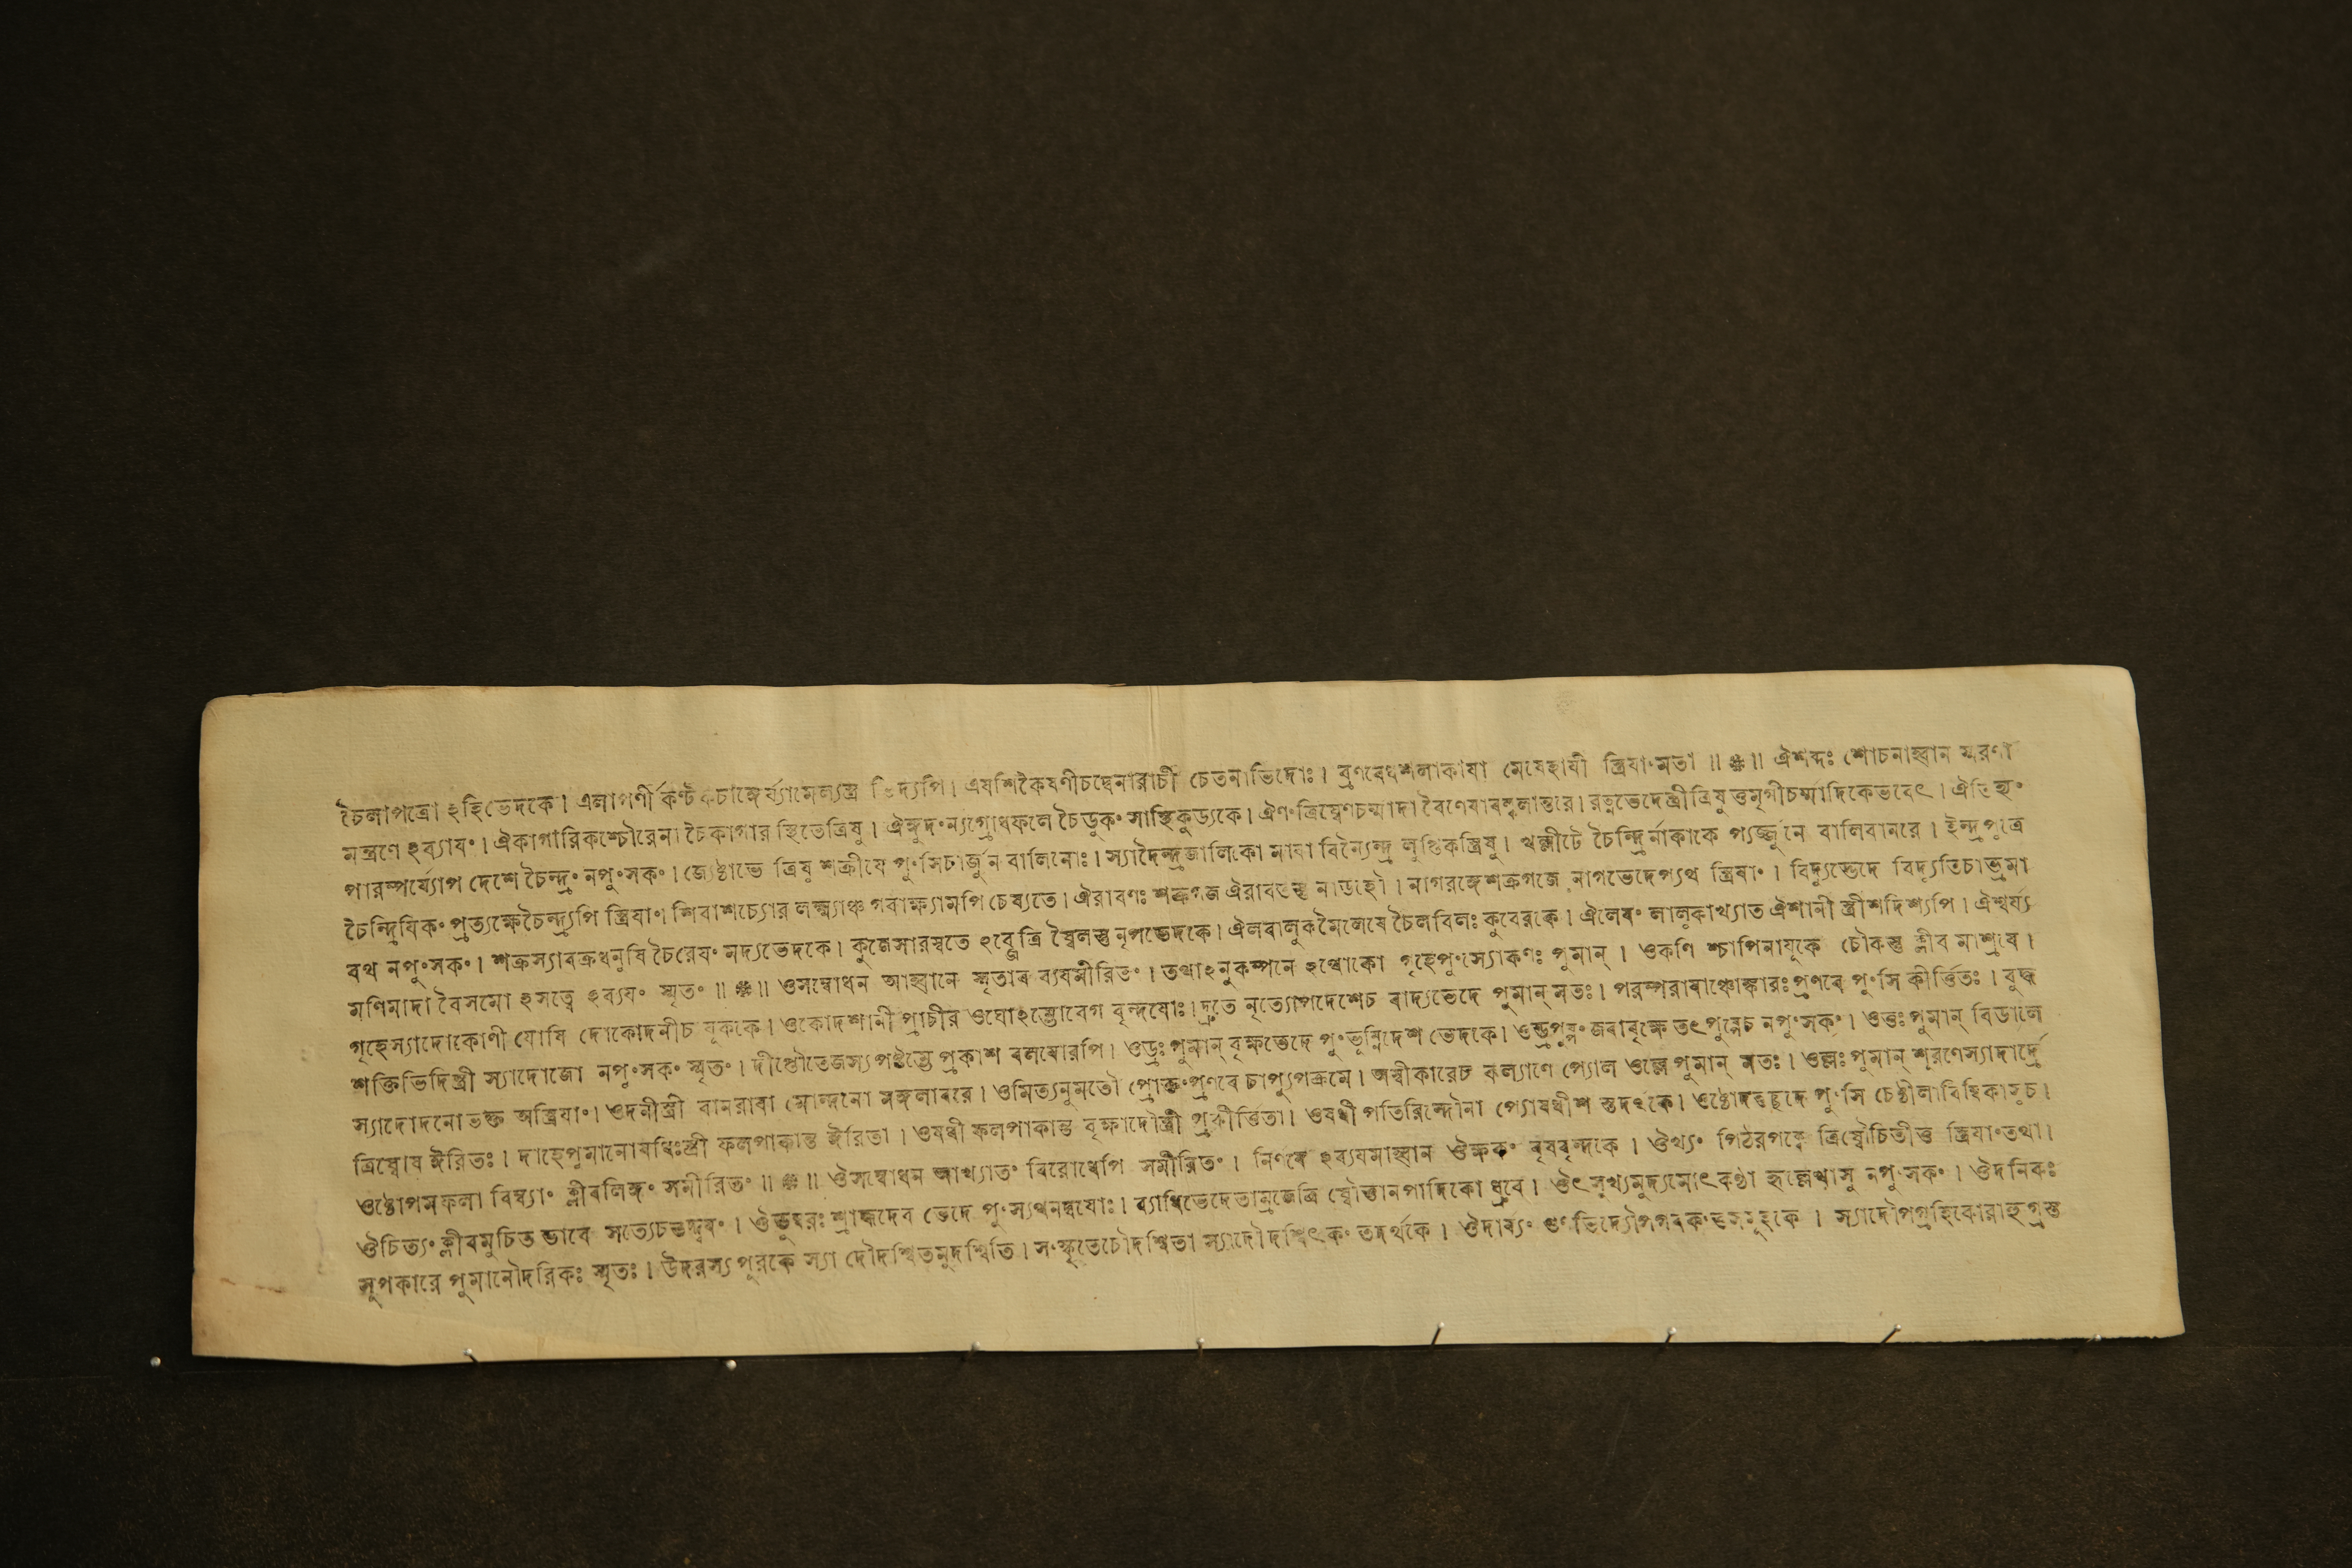 চৈলাপত্রো ঽহিভেদকে। এলাপর্ণী কণ্ট চাঙ্গের্য্যামেল্যস্ত্র ভিদ্যপি। এষশিকৈষণীচদ্বেনারাচী চেতনাভিদোঃ। ব্রণবেধশলাকাযা মেষেহাযী স্ত্রিযাংমতা॥ ❋॥ ঐশব্দঃ শোচনাহ্বান স্মরণা
মন্ত্রণে ঽব্যাযং। ঐকাগারিকশ্চৌরেনা চৈকাগার স্থিতেত্রিষু। ঐঙ্গুদংন্যগ্রোধফলে চৈডুকং সাস্থিকুড্যকে। ঐণংত্রিষ্বেণচর্ম্মাদা বৈণেযারল্লুলান্তরে। রত্নভেদেস্ত্রীত্রিষুত্তমৃগীচর্ম্মাদিকেভবেৎ। ঐতিহ্যং
পারম্পর্য্যোপ দেশে চৈন্দ্রং নপুংসকং। জ্যেষ্ঠাভে ত্রিষু শক্রীযে পুংসিচার্জুন বালিনোঃ। স্যাদৈন্দ্রজালিকো মাযা বিন্যৈন্দ্র লুপ্তিকস্ত্রিষু। খল্লীটে চৈন্দ্রির্নাকাকে প্যর্জ্জুনে বালিবানরে। ইন্দ্রপুত্রে
চৈন্দ্রিযিকং প্রত্যক্ষেচৈন্দ্র্যপি স্ত্রিযাং। শিবাশচ্যোর লক্ষ্ম্যাঞ্চ গবাক্ষ্যামপি চেষ্যতে। ঐরাবণঃ শক্রগজ ঐরাবতস্তু নাডহৌ। নাগরঙ্গেশক্রগজে নাগভেদেপ্যথ স্ত্রিযাং। বিদ্যুদ্ভেদে বিদ্যুতিচাভ্রমা
বথ নপুংসকং। শক্রস্যাবক্রধনুষি চৈরেযং মদ্যভেদকে। কুজেসারস্বতে ঽব্জেত্রি ষ্বৈলস্তু নৃপভেদকে। ঐলবালুকমৈলেষে চৈলবিলঃ কুবেরকে। ঐলেযং লালূকাখ্যাত ঐশানী স্ত্রীশদিশ্যপি। ঐশ্বর্য্য
মণিমাদা বৈসমো ঽসত্ত্বে ঽব্যযং স্মৃতং॥ ❋॥ ওসম্বোধন আহ্বানে স্মৃতাব ব্যযমীরিতং। তথাঽনুকম্পনে ঽথ্বোকো গৃহেপুংস্যোকণঃ পুমান্। ওকণি শ্চাপিনাযূকে চৌকস্তু ক্লীব মাশ্রযে।
গৃহেস্যাদোকোণী যোষি দোকোদনীচ যূককে। ওকোদশানী প্রাচীর ওঘোঽম্ভোবেগ বৃন্দযোঃ। দ্রুতে নৃত্যোপদেশেচ বাদ্যভেদে পুমান্ মতঃ। পরম্পরাযাঞ্চোঙ্কারঃ প্রণবে পুংসি কীর্ত্তিতঃ। বুদ্ধ
শক্তিভিদিস্ত্রী স্যাদোজো নপুংসকং স্মৃতং। দীপ্তৌতেজস্যপষ্টম্ভে প্রকাশ বলযোরপি। ওড্রঃ পুমান্ বৃক্ষভেদে পুংভূম্নিদেশ ভেদকে। ওড্রপুষ্পং জবাবৃক্ষে তৎপুষ্পেচ নপুংসকং। ওত্তঃ পুমান্ বিডালে
স্যাদোদনোভক্ত অস্ত্রিযাং। ওদনীস্ত্রী বানরাবা মোন্দনো মঙ্গলাবরে। ওমিত্যনুমতৌ প্রোক্তংপ্রণবে চাপ্যুপক্রমে। অঙ্গীকারেচ কল্যাণে প্যোল ওল্লে পুমান্ মতঃ। ওল্লঃ পুমান্ শূরণেস্যাদার্দ্রে
ত্রিষ্বোষ ঈরিতঃ। দাহেপুমানোষধিঃস্ত্রী ফলপাকান্ত ঈরিতা। ওষধী ফলপাকান্ত বৃক্ষাদৌস্ত্রী প্রকীর্ত্তিতা। ওষধী পতিরিন্দৌনা প্যোষধীশ স্তদংকে। ওষ্ঠোদন্তচ্ছদে পুংসি চেষ্ঠীলাবিম্বিকাসুচ।
ওষ্ঠোপমফলা বিম্ব্যাং ক্লীবলিঙ্গং সমীরিতং॥ ❋॥ ঔসম্বোধন আখ্যাতং বিরোধেপি সমীরিতং। নির্ণযে ঽব্যযমাহ্বান ঔক্ষকং বৃষবৃন্দকে। ঔখ্যং পিঠরপক্বে ত্রিষ্বৌচিতীত্ত স্ত্রিযাংতথা।
ঔচিত্যং ক্লীবমুচিত ভাবে সত্যেচতদ্দ্বযং। ঔডুম্বরঃ শ্রাদ্ধদেব ভেদে পুংস্যথনদ্বযোঃ। ব্যাধিভেদেতাম্রজেত্রি ষ্বৌত্তানপাদিকো ধ্রুবে। ঔৎসুখ্যমুদ্যমোৎকণ্ঠা হৃল্লেখাসু নপুংসকং। ঔদনিকঃ
সূপকারে পুমানৌদরিকঃ স্মৃতঃ। উদরস্য পুরকে স্যা দৌদশ্বিতমুদশ্বিতি। সংস্কৃতেচৌদশ্বিতা স্যাদৌদশ্বিৎকং তদর্থকে। ঔদার্য্যং গুণভিদ্যৌপগবকং সমূহকে। স্যাদৌপগ্রহিকোরাহুগ্রস্ত